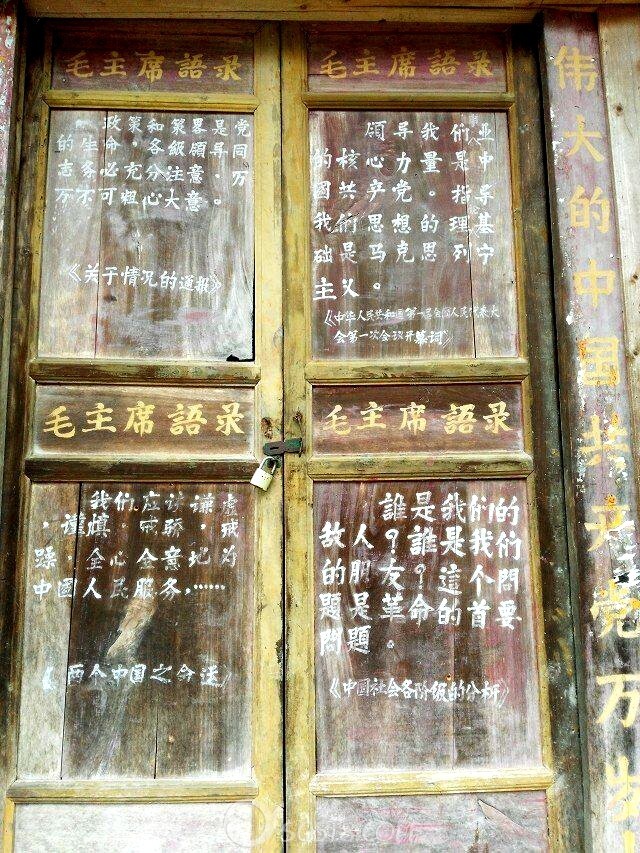 毛主席語录
政策和策畧是党
的生命.各级领导.同
志务必充分注意.万
万不可粗心大意。
《关于情况的通报》
毛主席語录
领导我们
的核心力量是中
国共产党。指导
我们思想的理基
础是马克思列宁
主义。
《中华人民共和国第一届全国人民代表大
会第一次会议开幕词》
毛主席語录
我们应该谦虚
,谨慎。戒骄,戒
躁.全心全意地为
中国人民服务,……
《两个中国之命运》
毛主席語录
誰是我們的
敌人?誰是我们
的朋友?這个問
題是革命的首要
問題。
《中国社会各阶级的分析》
伟大的中国共产党万岁